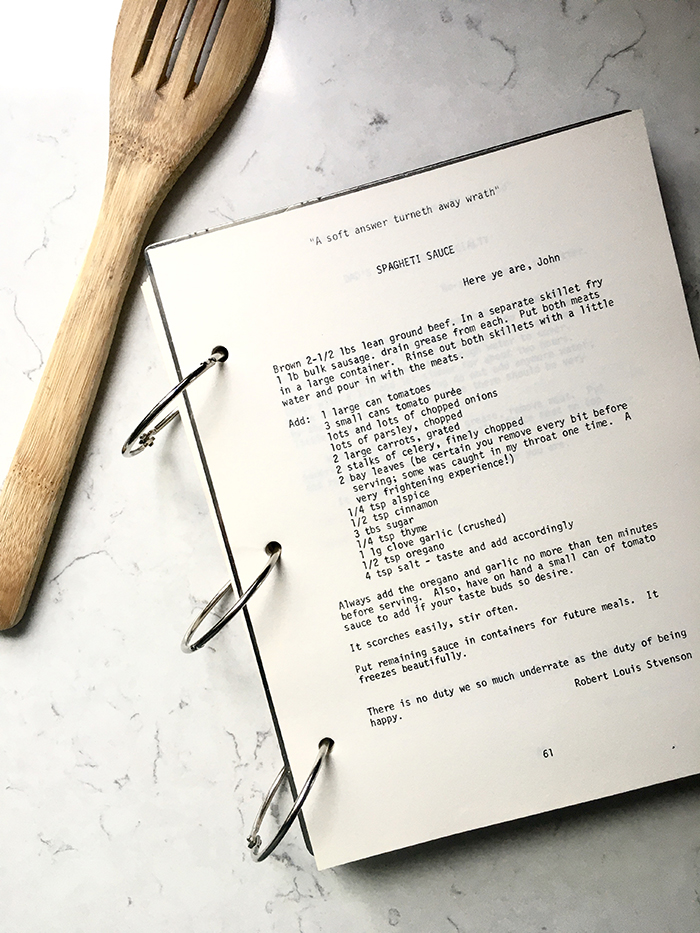 "A soft answer turneth away wrath"
SPAGHETI SAUCE
Here ye are, John
Brown 2-1/2 lbs lean ground beef. In a separate skillet fry
1 lb bulk sausage. drain grease from each. Put both meats
in a large container. Rinse out both skillets with a little
water and pour in with the meats.
Add: 1 large can tomatoes
3 small cans tomato purée
lots and lots of chopped onions
lots of parsley, chopped
2 large carrots, grated
2 stalks of celery, finely chopped
2 bay leaves (be certain you remove every bit before
serving; some was caught in my throat one time. A
very frightening experience!)
1/4 tsp alspice
1/2 tsp cinnamon
3 tbs sugar
1/4 tsp thyme
1 lg clove garlic (crushed)
1/2 tsp oregano
4 tsp salt - taste and add accordingly
Always add the oregano and garlic no more than ten minutes
before serving. Also, have on hand a small can of tomato
sauce to add if your taste buds so desire.
It scorches easily, stir often.
Put remaining sauce in containers for future meals. It
freezes beautifully.
There is no duty we so much underrate as the duty of being
happy.
Robert Louis Stvenson
61